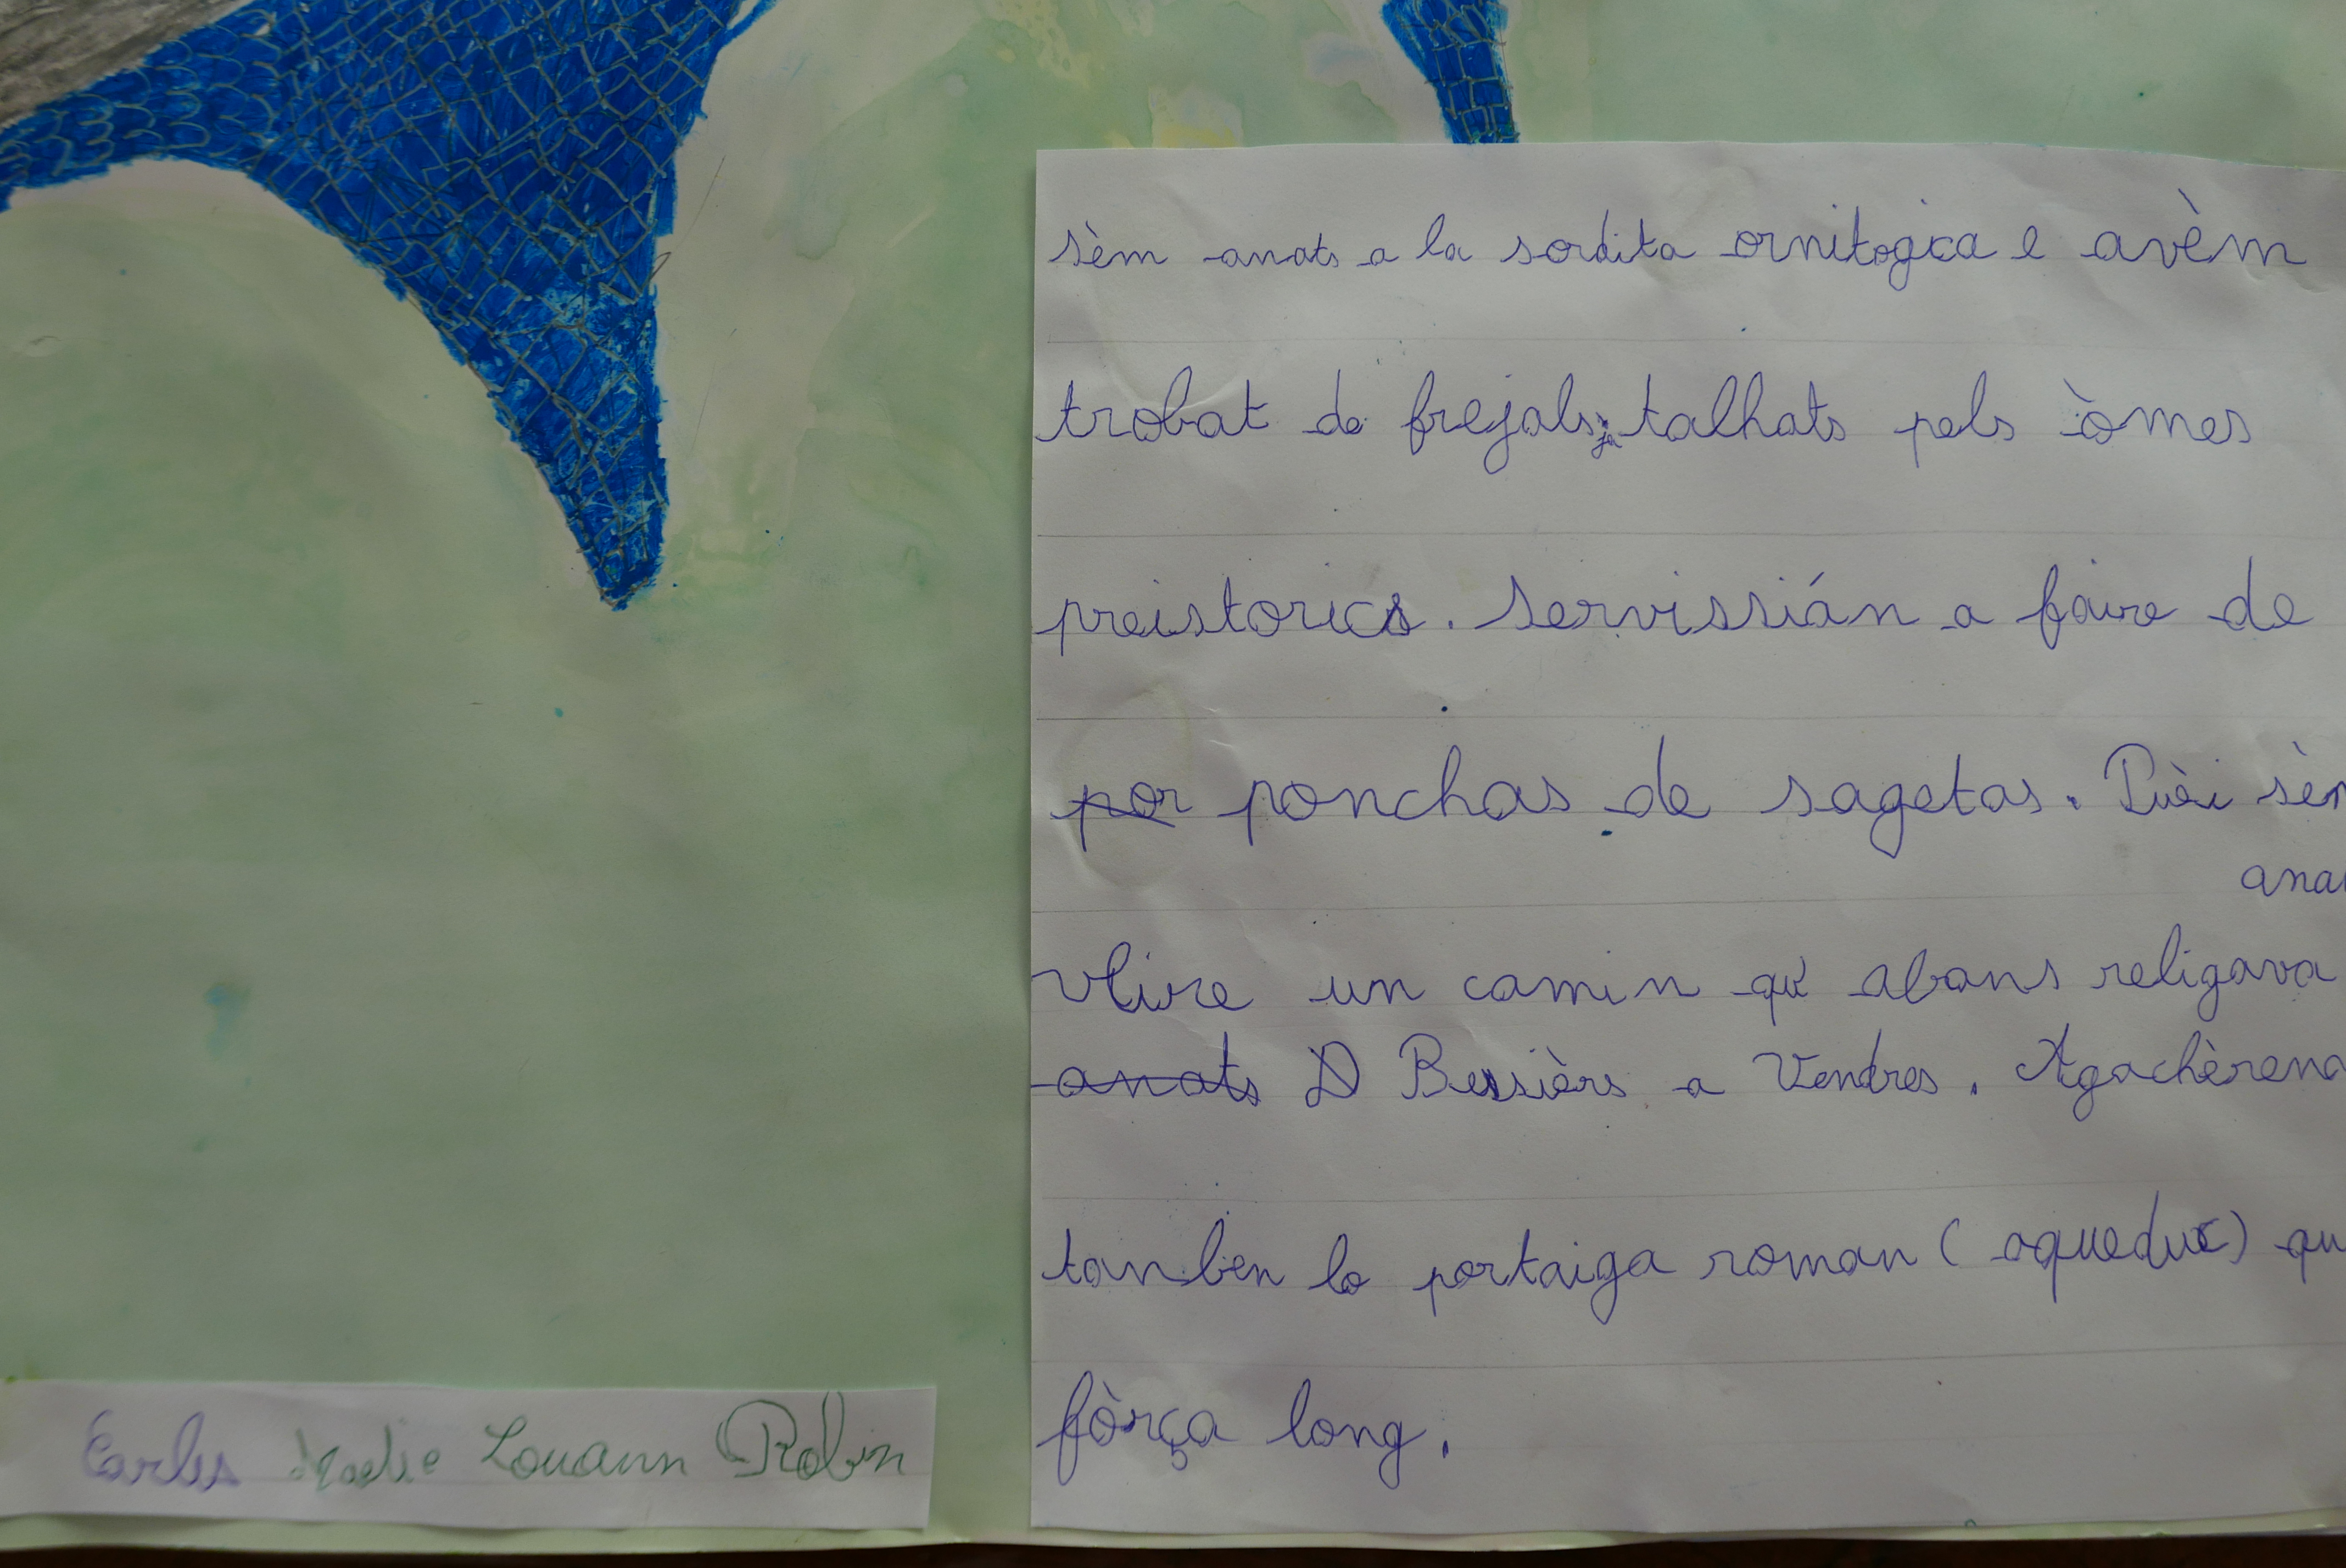 sèm anats a la sordita ornitogica e avèm
trobat de frejals talhats pels òmes
preistorics. Servissián a faire de
por ponchas de sagetas. Puèi sèm
anat
veire un camin qu' abans religava
anats D Bessièrs a Vendres. Agachèrem
tanben lo portaiga roman (aqueduc) qu
fòrça long.
Carles Maelie Louann Robin